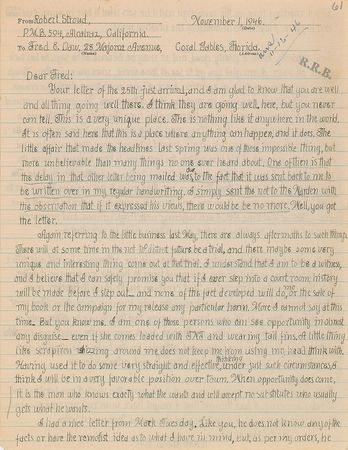 61
From Robert Stroud, November 1, 1946.
P.M.B. 594, Alcatraz, California.
To Fred E. Daw, 28 Majorca Avenue, Coral Gables, Florida.
(Name) (Address)
R.R.B.
Dear Fred:
Your letter of the 25th just arrived, and I am glad to know that you are well
and all thing going well there. I think they are going well, here, but you never
can tell. This is a very unique place. The is nothing like it anywhere in the world.
It is often said here that this is a place where anything can happen, and it does. The
little affair that made the headlines last spring was one of those impossible thing, but
more unbelievable than many things no one ever heard about. One of then is that
the delay in that other letter being mailed was due to the fact that it was sent back to me to
be written over in my regular handwriting. I simply sent the not to the Warden with
the observation that if it expressed his views, there would be no more. Well, you got
the letter.
Again referring to the little business last May, there are always aftermaths to such things.
There will at some time in the not to distant future be a trial, and there maybe some very
unique and interesting thing come out at that trial. I understand that I am to be a witness,
and I believe that I can safely promise you that if I ever step into a court room, history
will be made before I step out — and none of the fact developed will do me or the sale of
my book or the campaign for my release any particular harm. More I cannot say at this
time. But you know me. I am one of those persons who can see opportunity in almost
any disguise — even if she comes loaded with TNT and wearing tail fins. A little thing
like scrapiron whizzing around me does not keep me from using my head think with.
Having used it to do some very straight and effective thinking under just such circumstances, I
think I will be in a very favorable position over town. When opportunity does come,
it is the man who knows exactly what the wants and will accept no substitutes who usually
gets what he wants.
I had a nice letter from Mark Tuesday. Like you, he does not know any of the
facts or have the remotist idea as to what I have in mind, but, as per my orders, he